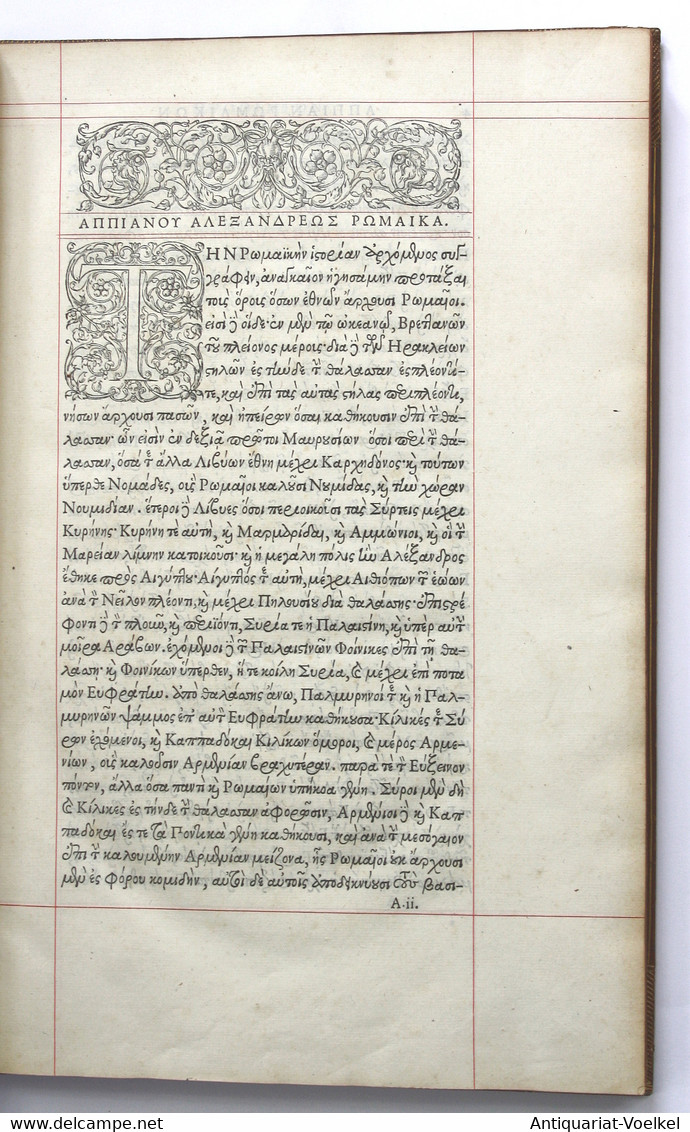 ΑΠΠΙΑΝΟΥ ΑΛΕΞΑΝΔΡΕΩΣ ΡΩΜΑΙΚΑ.
ΤΗΝ Ρωμαϊκὴν ἱστορίαν ἀρχόμενος συγ-
γράφειν, ἀναγκαῖον ἡγησάμην προτάξαι
τοὺς ὅρους ὅσων ἐθνῶν ἄρχουσι Ρωμαῖοι.
εἰσὶ δὲ οἵδε· ἐν μὲν τῷ ὠκεανῷ, Βρεττανῶν
τοῦ πλείονος μέρους· διὰ δὲ τῶν Ηρακλείων
στηλῶν ἐς τήνδε τὴν θάλασσαν ἐσπλέοντί-
τε, καὶ ἐπὶ τὰς αὐτὰς στήλας περιπλέοντι,
νήσων ἄρχουσι πασῶν, καὶ ἠπείρων ὅσαι καθήκουσιν ἐπὶ τὴν θά-
λασσαν· ὧν εἰσὶν ἐν δεξιᾷ πρῶτοι Μαυρυσίων ὅσοι περὶ τὴν θά-
λασσαν, ὅσα τε ἄλλα Λιβύων ἔθνη μέχρι Καρχηδόνος· καὶ τούτων
ὕπερθε Νομάδες, οὓς Ρωμαῖοι καλοῦσι Νουμίδας, καὶ τὴν χώραν
Νουμιδίαν. ἕτεροι δὲ Λίβυες ὅσοι περιοικοῦσι τὰς Σύρτεις μέχρι
Κυρήνης· Κυρήνη τὲ αὐτὴ, καὶ Μαρμαρίδαι, καὶ Αμμώνιοι, καὶ οἳ τὴν
Μαρείαν λίμνην κατοικοῦσι· καὶ ἡ μεγάλη πόλις ἣν Αλέξανδρος
ἔθηκε πρὸς Αἰγύπτου· Αἴγυπτός τε αὐτὴ, μέχρι Αἰθιόπων τῶν ἑώων
ἀνὰ τὸν Νεῖλον πλέοντι, καὶ μέχρι Πηλουσίου διὰ θαλάσσης· ἐπιστρέ
φοντι δὲ τὸν πλοῦν, καὶ περιϊόντι, Συρία τε ἡ Παλαιστίνη, καὶ ὑπὲρ αὐτὴν
μοῖρα Αράβων. ἐχόμενοι δὲ τῶν Παλαιστινῶν Φοίνικες ἐπὶ τῇ θα-
λάσσῃ· καὶ Φοινίκων ὕπερθεν, ἥ τε κοίλη Συρία, καὶ μέχρι ἐπὶ ποτα
μὸν Εὐφράτην. ἀπὸ θαλάσσης ἄνω, Παλμυρηνοί τε καὶ ἡ Παλ-
μυρηνῶν ψάμμος ἐπ' αὐτὸν Εὐφράτην καθήκουσα· Κίλικές τε Σύ
ρων ἐχόμενοι, καὶ Καππαδόκαι Κιλίκων ὅμοροι, καὶ μέρος Αρμε-
νίων, οὓς καλοῦσιν Αρμενίαν βραχυτέραν. παρά τε τὸν Εὔξεινον
πόντον, ἄλλα ὅσα ποντικὰ Ρωμαίων ὑπήκοα γένη. Σύροι μὲν δὴ
καὶ Κίλικες ἐς τήνδε τὴν θάλασσαν ἀφορῶσιν, Αρμένιοι δὲ καὶ Καπ
παδόκαι ἔς τε τὰ Ποντικὰ γένη καθήκουσι, καὶ ἀνὰ τὴν μεσόγαιον
ἐπὶ τὴν καλουμένην Αρμενίαν μείζονα, ἧς Ρωμαῖοι οὐκ ἄρχουσι
μὲν ἐς φόρου κομιδὴν, αὐτοὶ δὲ αὐτοῖς ἀποδεικνύουσι τοὺς βασι-
A.ii.
Antiquariat-Voelkel